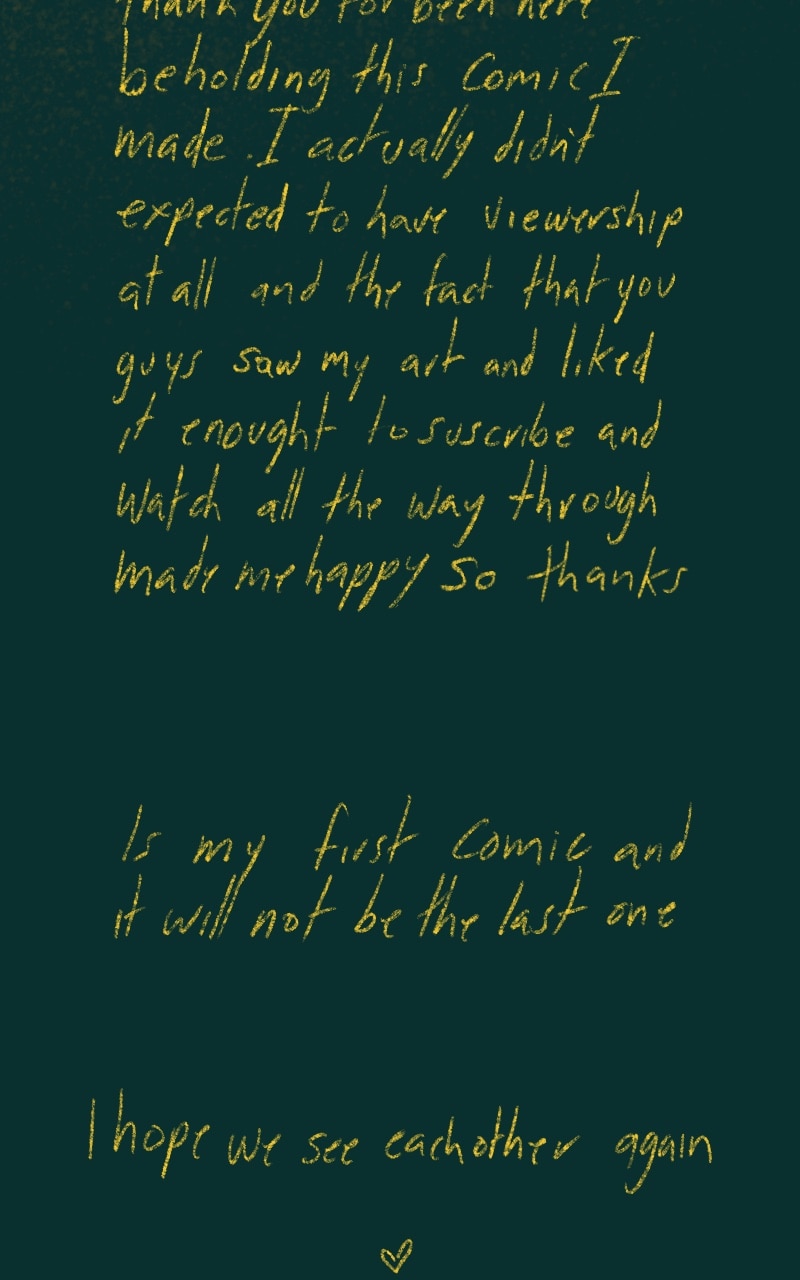 Thank you for been here
beholding this Comic I
made . I actually didn't
expected to have viewership
at all and the fact that you
guys saw my art and liked
it enought to suscribe and
watch all the way through
made me happy so thanks
Is my first comic and
it will not be the last one
I hope we see eachother again